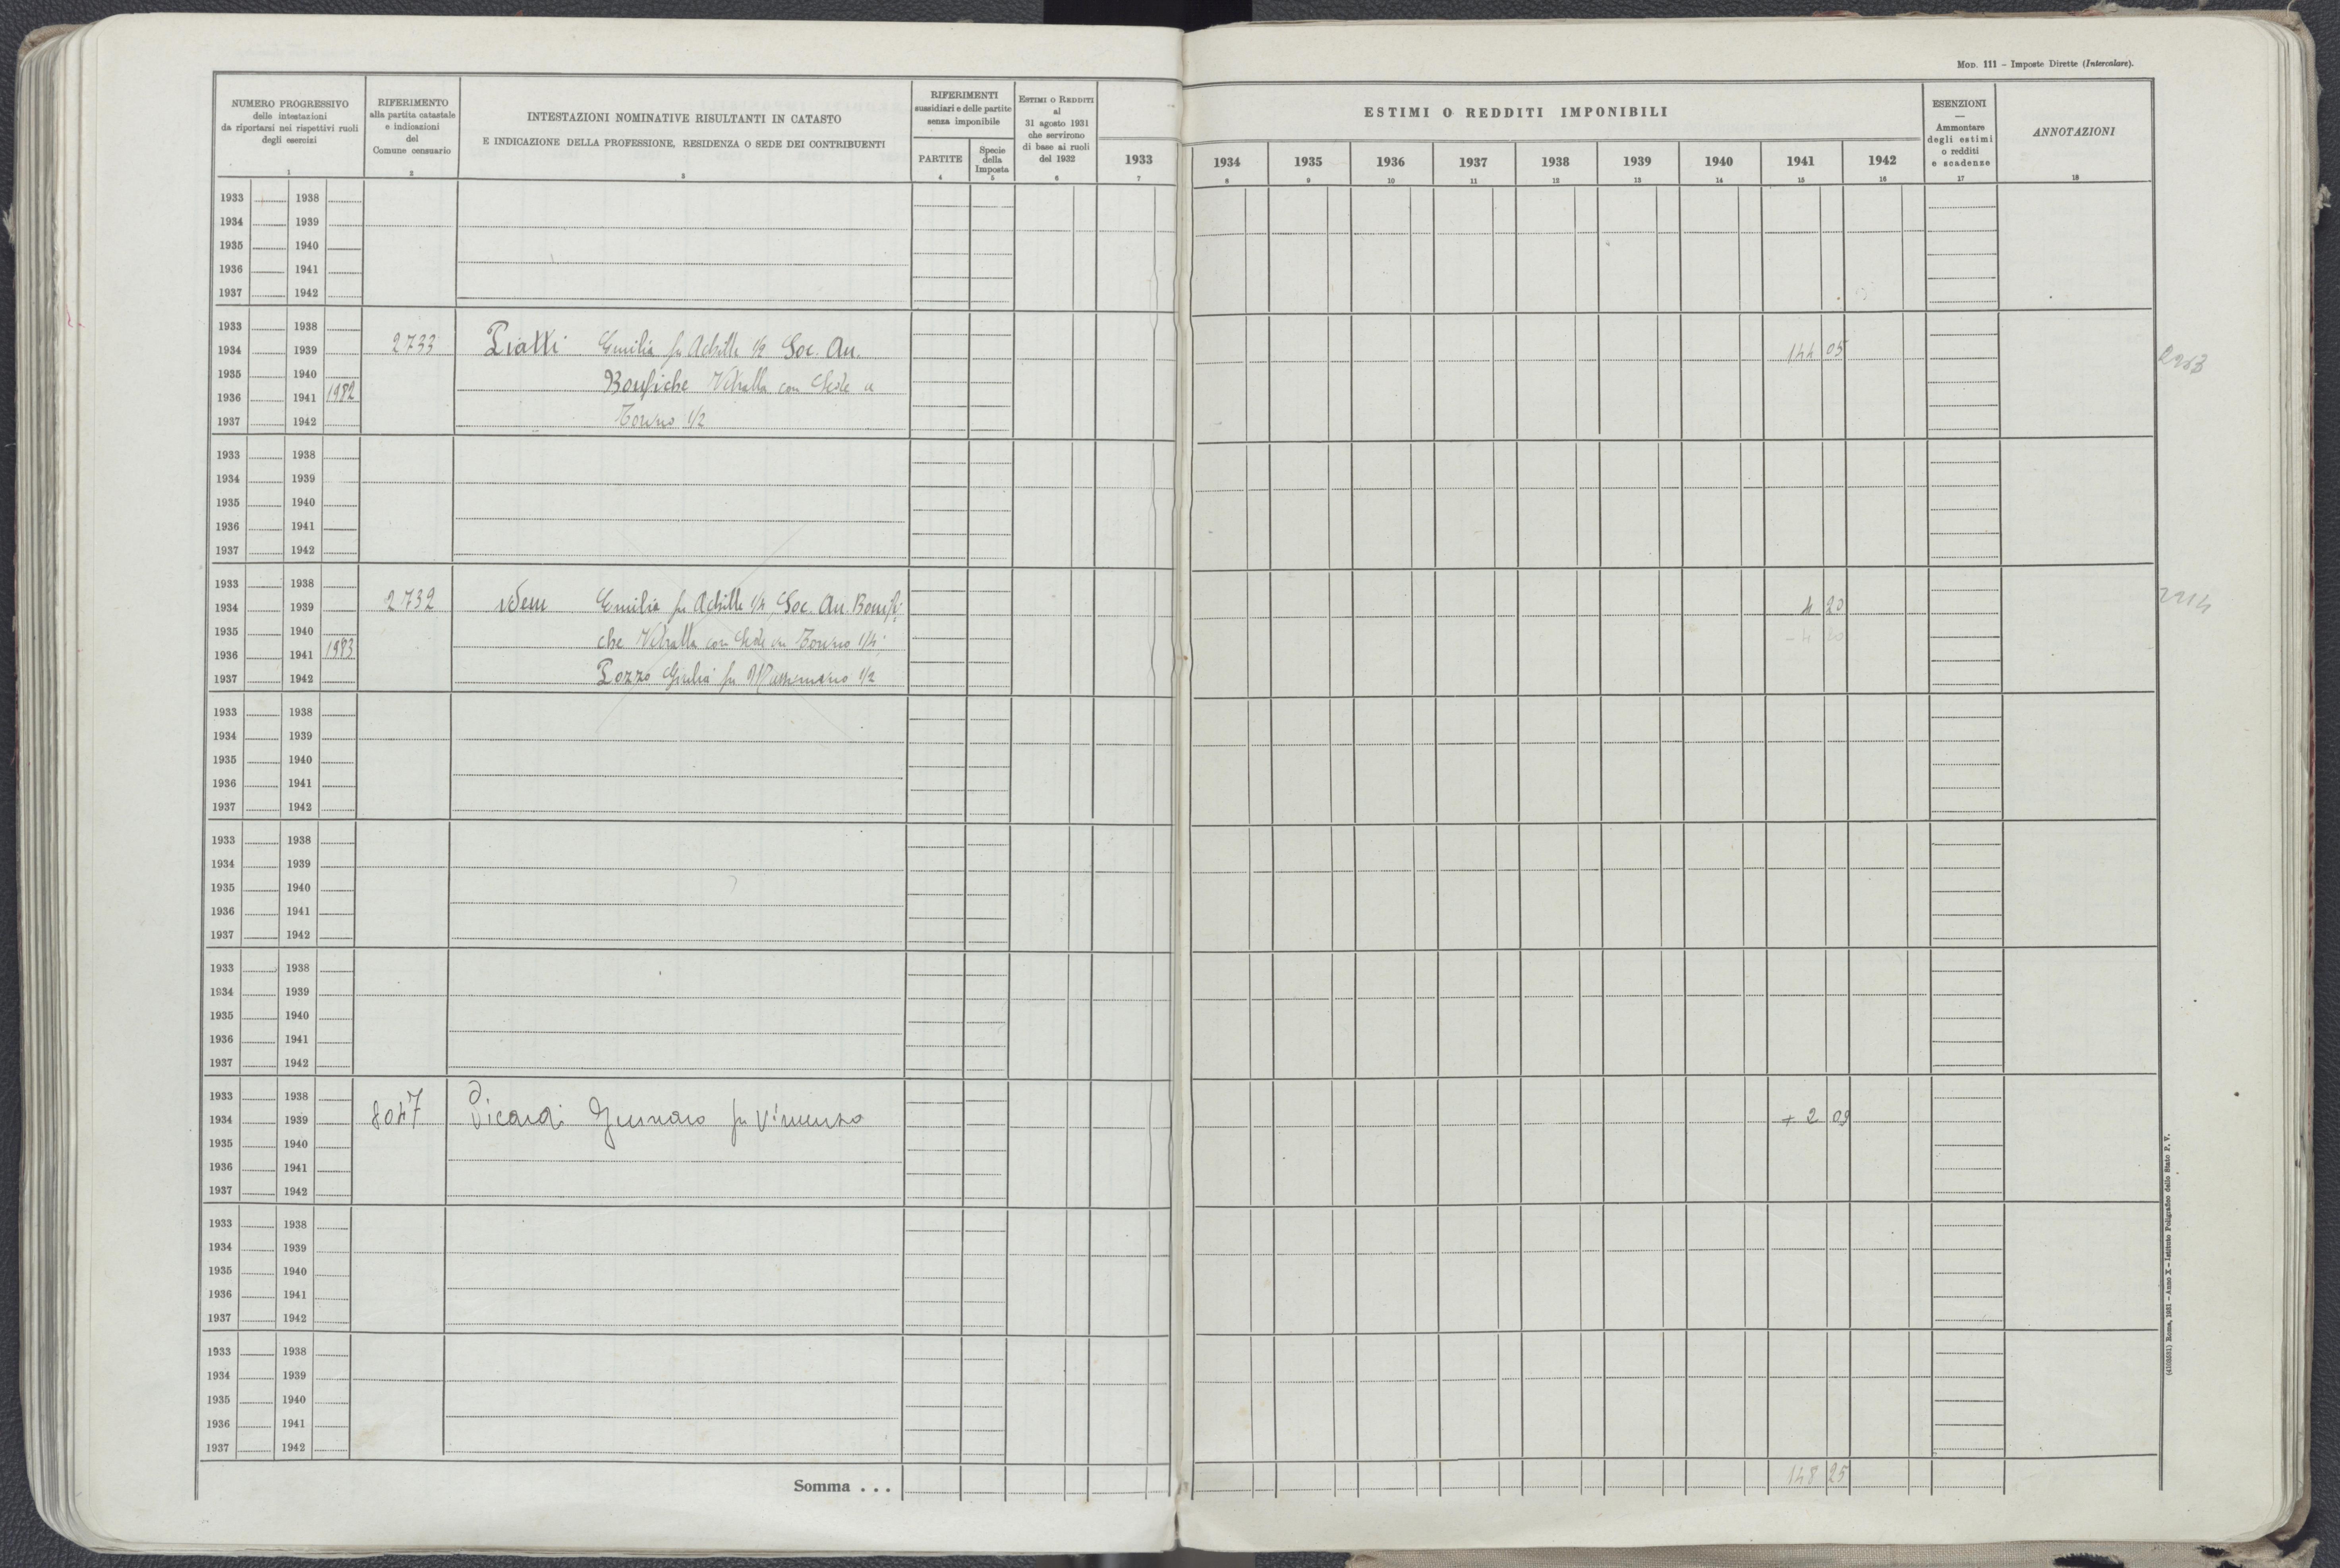 Mod. 111 – Imposte Dirette (Intercalare).
NUMERO PROGRESSIVO
delle intestazioni
da riportarsi nei rispettivi ruoli
degli esercizi
1
RIFERIMENTO
alla partita catastale
e indicazioni
del
Comune censuario
2
INTESTAZIONI NOMINATIVE RISULTANTI IN CATASTO
E INDICAZIONE DELLA PROFESSIONE, RESIDENZA O SEDE DEI CONTRIBUENTI
3
RIFERIMENTI
sussidiari e delle partite
senza imponibile
PARTITE
4
Specie
della
Imposta
5
Estimi o Redditi
al
31 agosto 1931
che servirono
di base ai ruoli
del 1932
6
ESTIMI O REDDITI IMPONIBILI
1933 1934 1935 1936 1937 1938 1939 1940 1941 1942
7 8 9 10 11 12 13 14 15 16
ESENZIONI
—
Ammontare
degli estimi
o redditi
e scadenze
17
ANNOTAZIONI
18
1933 1938
1934 1939
1935 1940
1936 1941
1937 1942
1933 1938
1934 1939 2733 Piatti Emilia fu Achille 1/2 Soc. An. 144 05
1935 1940 Bonifiche Vetralla con Sede a
1936 1941 1982
1937 1942 Torino 1/2
1933 1938
1934 1939
1935 1940
1936 1941
1937 1942
1933 1938
1934 1939 2732 idem Emilia fu Achille 1/4, Soc. An. Bonifi- 4 20 2214
1935 1940 che Vetralla con Sede in Torino 1/4; - 4 20
1936 1941 1983
1937 1942 Pozzo Giulia fu Massimino 1/2
1933 1938
1934 1939
1935 1940
1936 1941
1937 1942
1933 1938
1934 1939
1935 1940
1936 1941
1937 1942
1933 1938
1934 1939
1935 1940
1936 1941
1937 1942
1933 1938
1934 1939 8047 Picardi Gennaro fu Vincenzo + 2 09
1935 1940
1936 1941
1937 1942
1933 1938
1934 1939
1935 1940
1936 1941
1937 1942
1933 1938
1934 1939
1935 1940
1936 1941
1937 1942
Somma . . . 148 25
(4103531) Roma, 1931 – Anno X – Istituto Poligrafico dello Stato P. V.